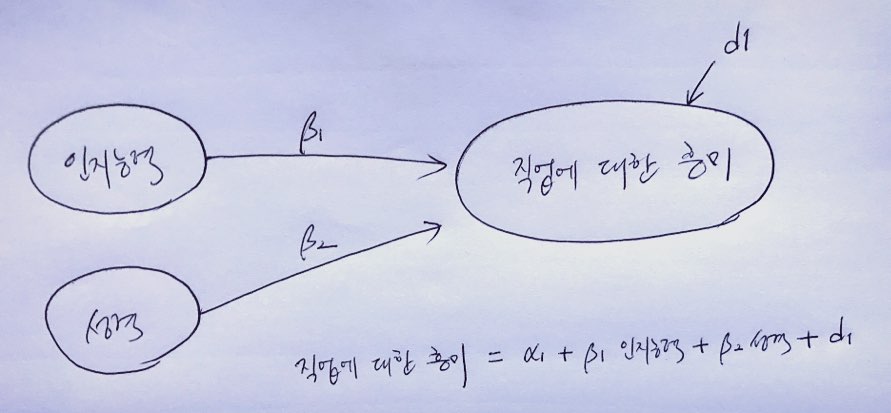 d1
β1
인지능력
직업에 대한 흥미
β2
성격
직업에 대한 흥미 = α1 + β1 인지능력 + β2 성격 + d1